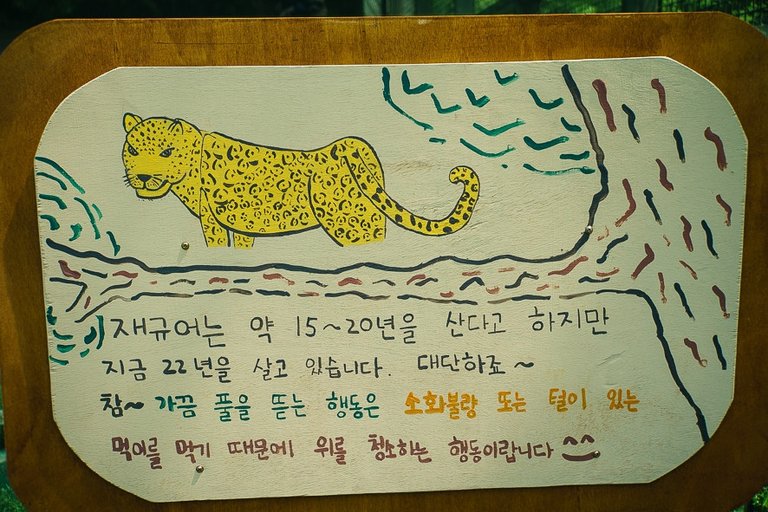 재규어는 약 15~20년을 산다고 하지만
지금 22년을 살고 있습니다. 대단하죠~
참~ 가끔 풀을 뜯는 행동은 소화불량 또는 털이 있는
먹이를 먹기 때문에 위를 청소하는 행동이랍니다 ^^